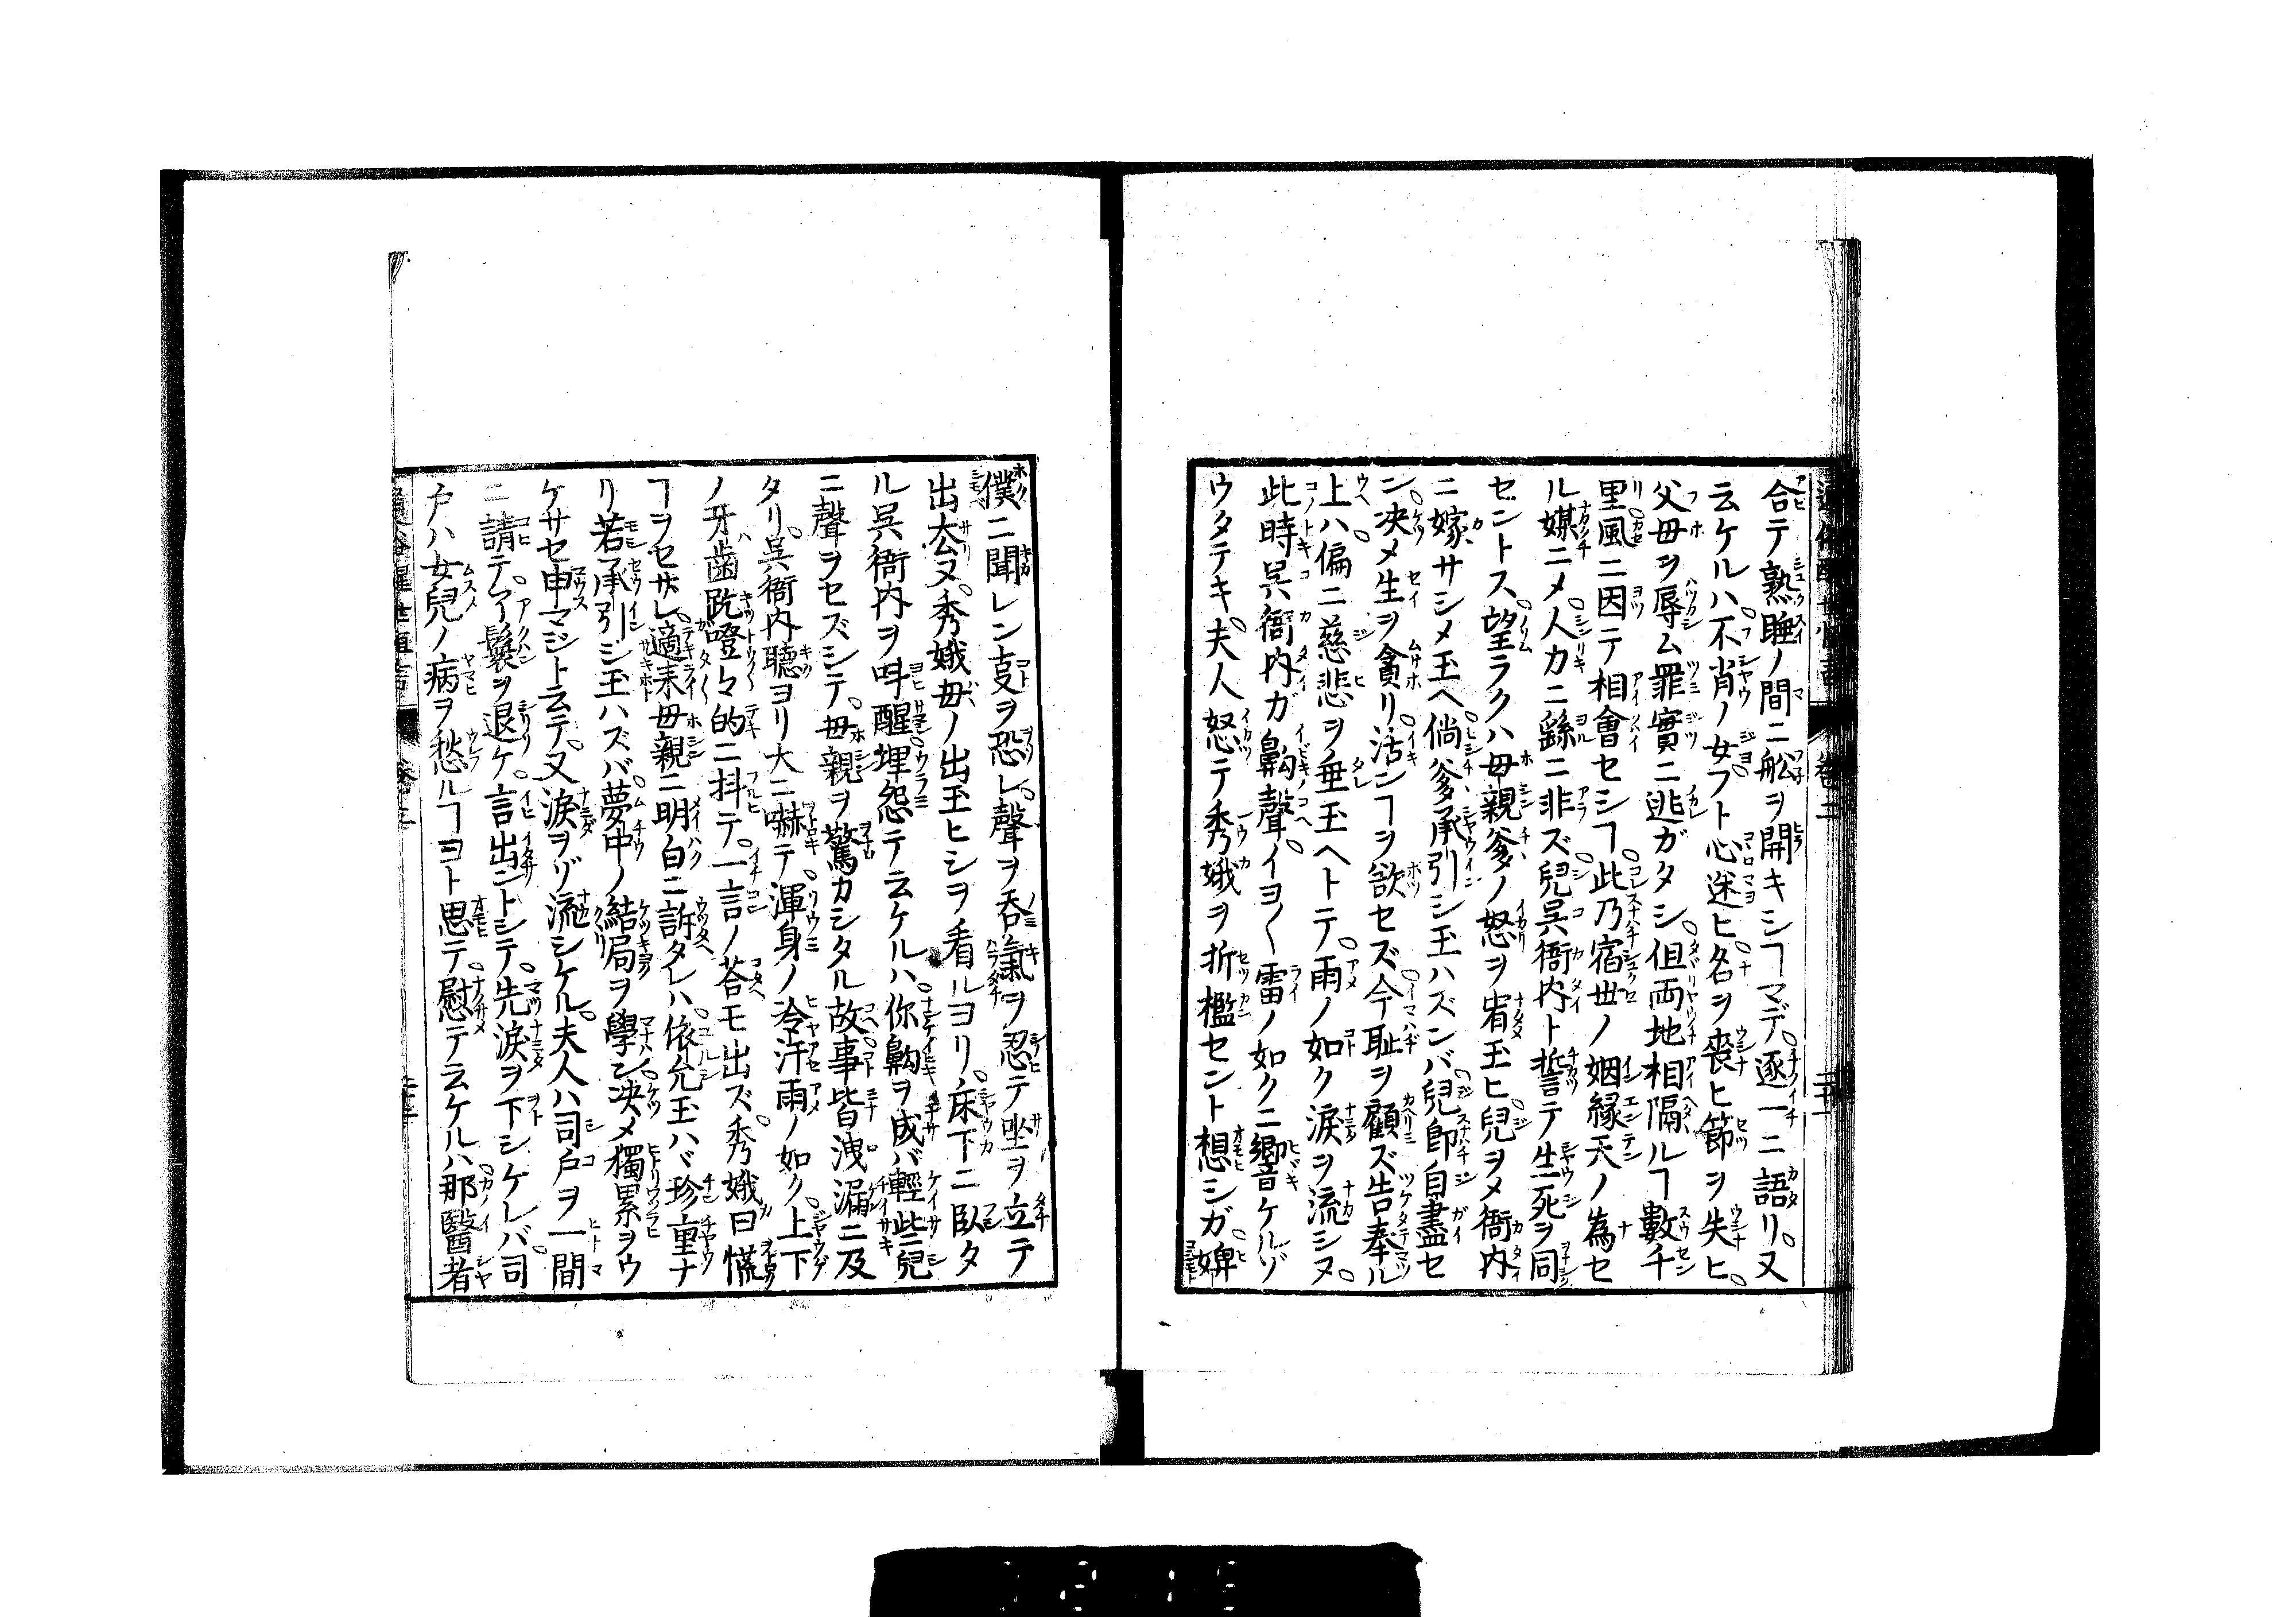 合テ熟睡ノ間ニ舩ヲ開キシヿマデ逐一ニ語リ又
云ケルハ不肖ノ女フト心迷ヒ名ヲ喪ヒ節ヲ失ヒ
父母ヲ辱ム罪實ニ迯ガタシ但両地相隔ルヿ數千
里風ニ因テ相會セシヿ此乃宿世ノ姻縁天ノ為セ
ル媒ニメ人力ニ繇ニ非ズ兒呉衙内ト誓テ生死ヲ同
セントス望ラクハ母親爹ノ怒ヲ宥玉ヒ兒ヲメ衙内
ニ嫁サシメ玉ヘ倘爹承引シ玉ハズンバ兒即自盡セ
ン决メ生ヲ貪リ活ンヿヲ欲セズ今耻ヲ顧ズ告奉ル
上ハ偏ニ慈悲ヲ垂玉ヘトテ雨ノ如ク涙ヲ流シヌ
此時呉衙内ガ鼾聲イヨ〱雷ノ如クニ響ケルゾ
ウタテキ夫人怒テ秀娥ヲ折檻セント想シガ婢
僕ニ聞レン叓ヲ恐レ聲ヲ吞氣ヲ忍テ坐ヲ立テ
出厺ヌ秀娥母ノ出玉ヒシヲ看ルヨリ床下ニ臥タ
ル呉衙内ヲ呌醒埋怨テ云ケルハ你鼾ヲ成バ輕些兒
ニ聲ヲセズシテ母親ヲ驚カシタル故事皆洩漏ニ及
タリ呉衙内聴ヨリ大ニ嚇テ渾身ノ冷汗雨ノ如ク上下
ノ牙齒趷蹬々的ニ抖テ一言ノ荅モ出ズ秀娥曰慌
ヿヲセザレ適来母親ニ明白ニ訴タレハ依允玉ハバ珍重ナ
リ若承引シ玉ハズバ夢中ノ結局ヲ學ン决メ獨累ヲウ
ケサセ申マジト云テ又涙ヲゾ流シケル夫人ハ司戸ヲ一間
ニ請テ丫鬟ヲ退ケ言出ントシテ先涙ヲ下シケレバ司
戸ハ女兒ノ病ヲ愁ルヿヨト思テ慰テ云ケルハ那醫者